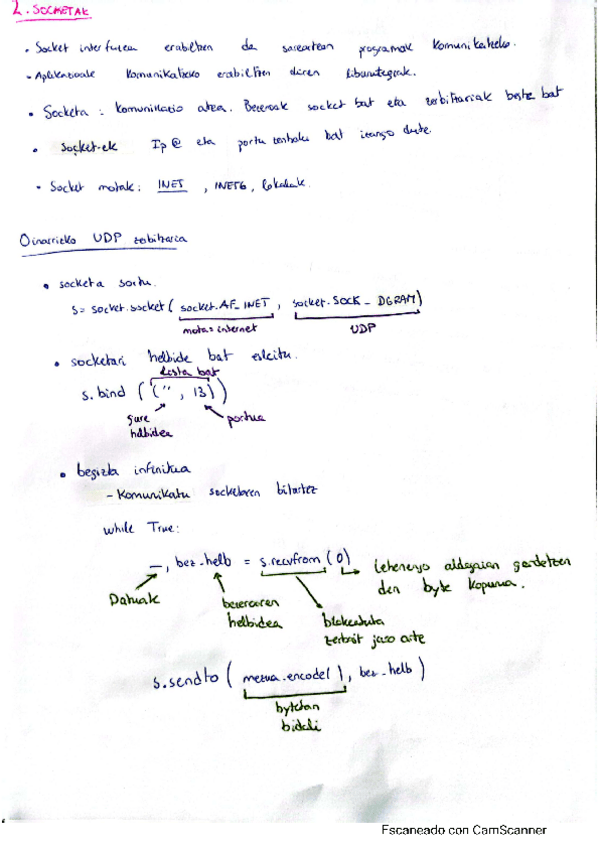 2. SOCKETAK
• Socket interfazea erabiltzen da sarearen programak komunikatzeko.
- Aplikazioak komunikatzeko erabiltzen diren liburutegiak.
• Socketa : Komunikazio atea. Bezeroak socket bat eta zerbitzariak beste bat
• Socket-ek Ip @ eta portu zenbaki bat izango dute.
• Socket motak: INET , INET6, lokalak.
Oinarrizko UDP zerbitzaria
• socketa sortu.
s= socket.socket( socket.AF_INET , socket.SOCK_DGRAM)
mota= internet UDP
• socketari helbide bat esleitu.
lista bat
s.bind ( ( " , 13 ) )
gure helbidea
portua
• begizta infinitua
- Komunikatu socketaren bitartez
while True:
_, bez_helb = s.recvfrom (0) lehenengo aldagaian gordetzen
den byte kopurua.
Datuak
bezeroaren helbidea
blokeatuta zerbait jaso arte
s.sendto ( mezua.encode( ), bez_helb )
bytetan
bidali
Escaneado con CamScanner